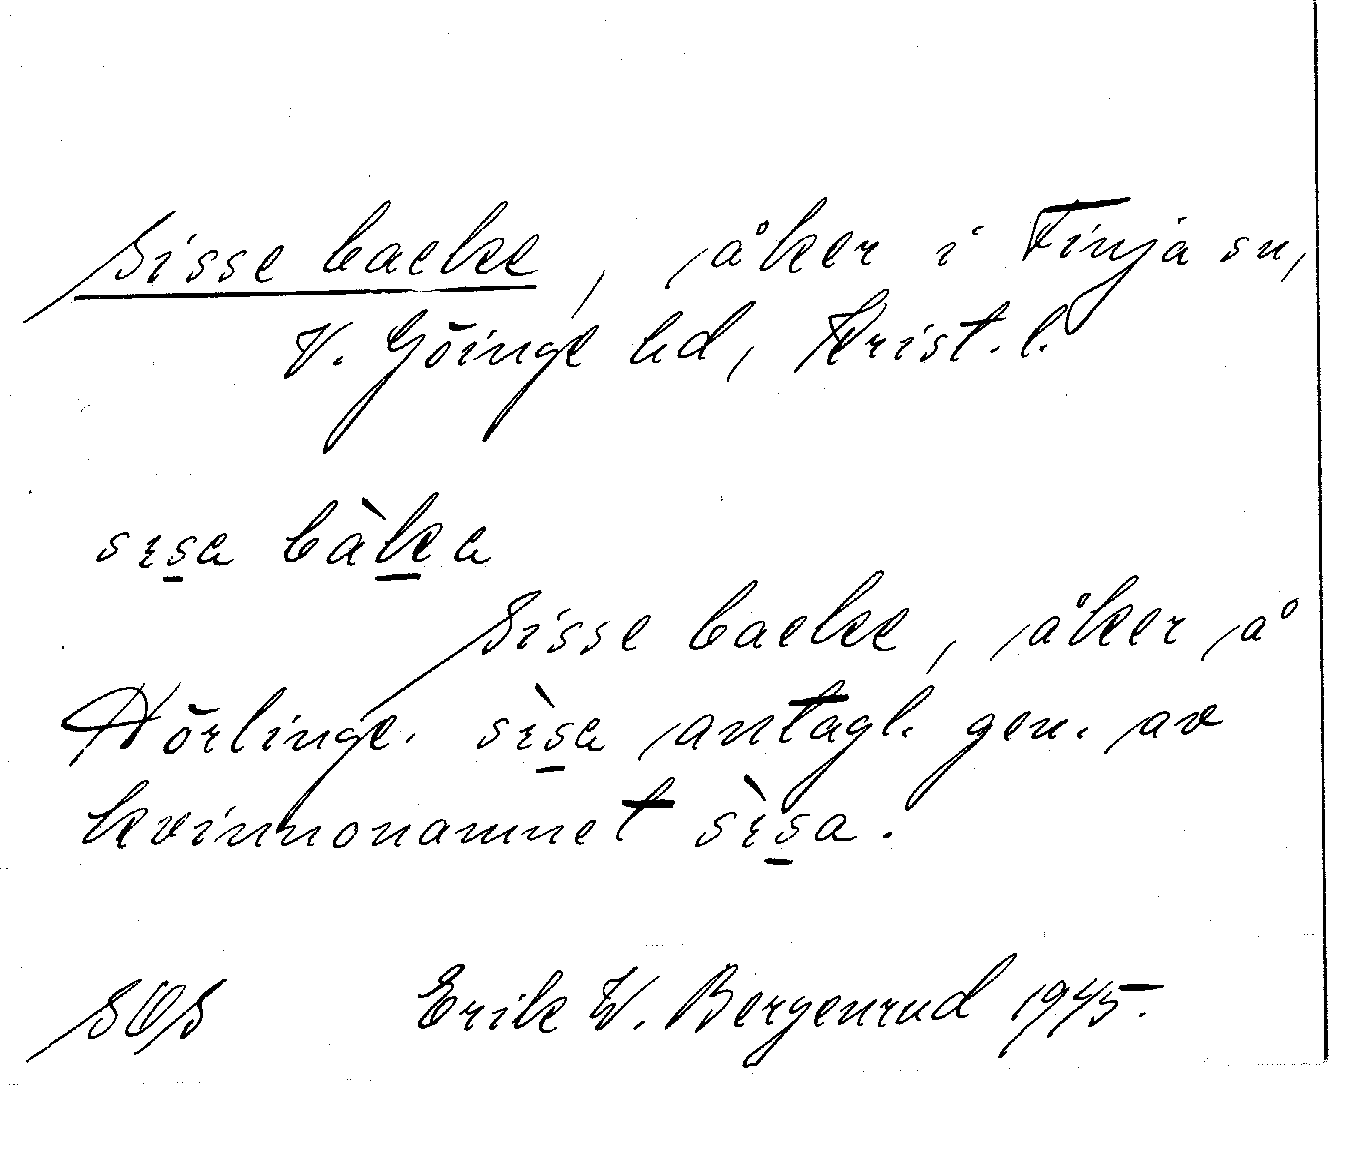 Sisse backe, åker i Finja sn,
V. Göinge hd, Krist. l.
sɪs̲a bàk̲a
Sisse backe, åker å
Hörlinge. sɪ̀s̲a antagl. gen. av
kvinnonamnet sɪ̀s̲a.
SOS Erik W. Bergenrud 1945.